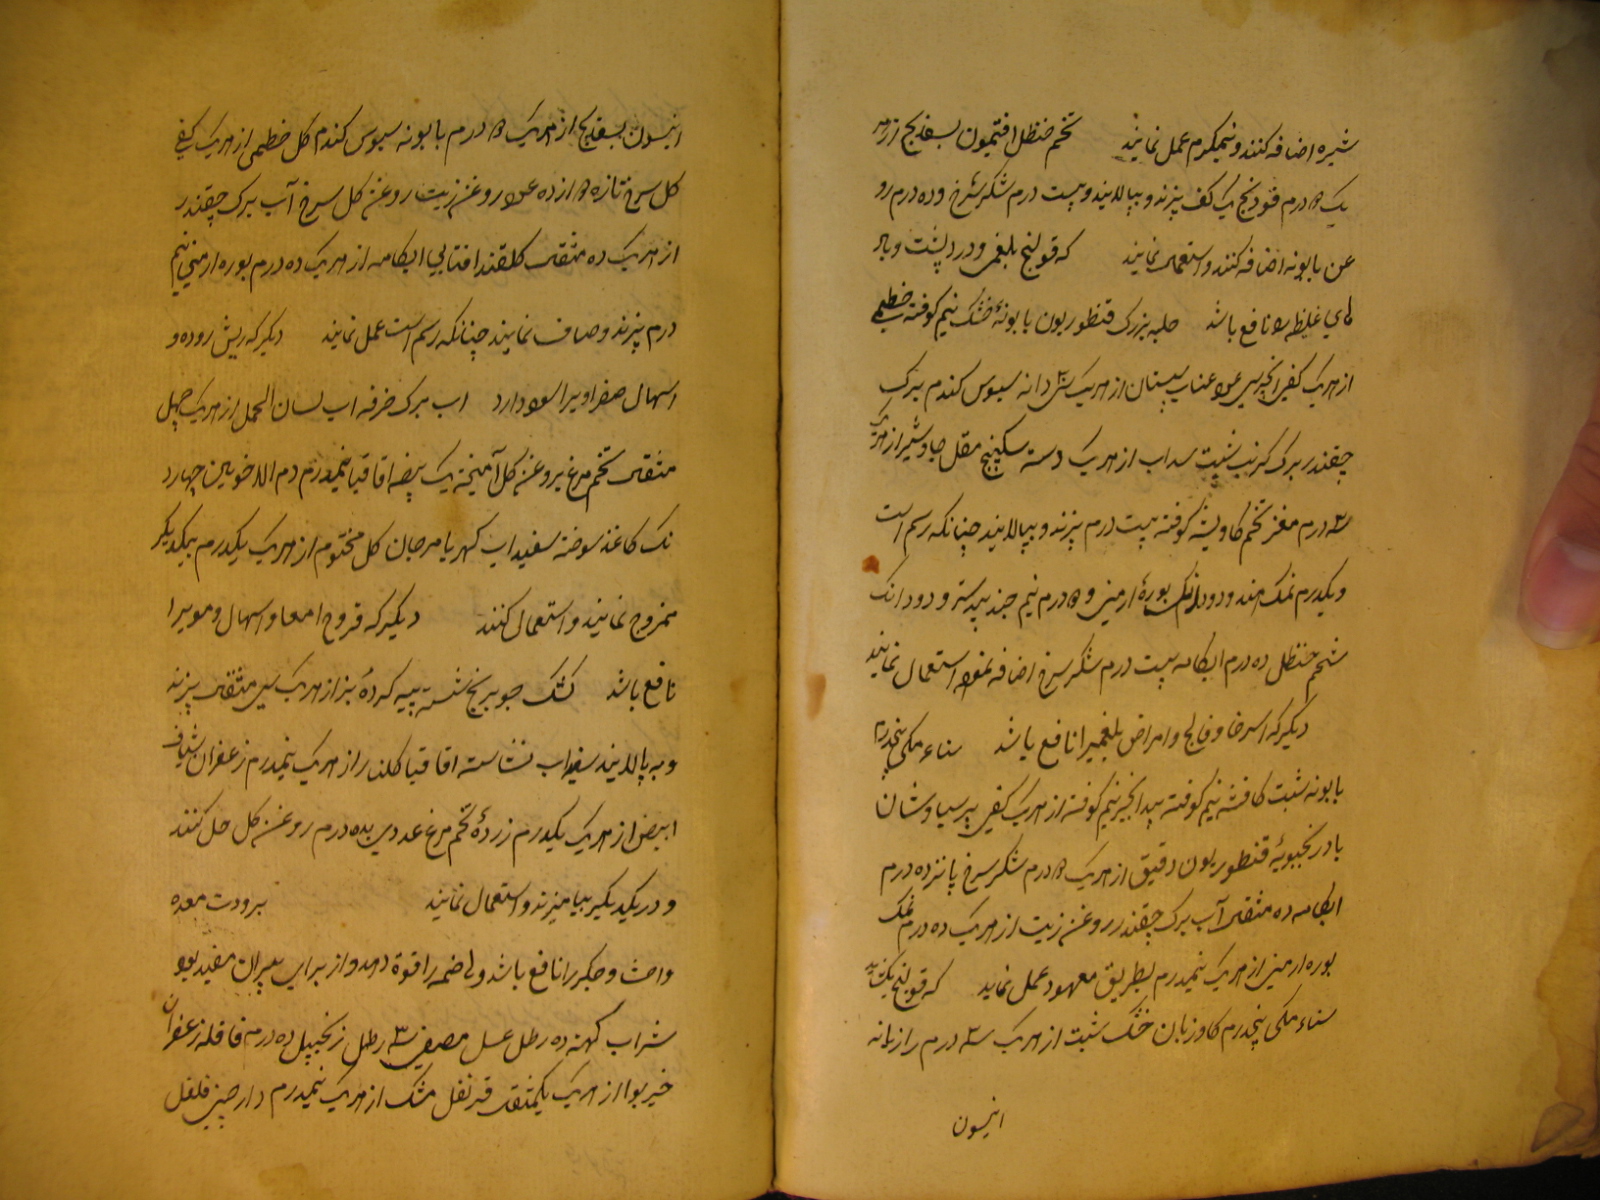 شیره اضافه کنند و نیمکرم عمل نمایند تخم حنظل افتیمون بسفایج از هر
یک ۵ درم فودنج یک کف بپزند و بپالایند و بیست درم شکر سرخ و ده درم رو
غن بابونه اضافه کنند و استعمال نمایند که قولنج بلغمی و درد پشت و باد
های غلیظ را نافع باشد حلبه بزرک قنطوریون بابونهٔ خشک نیم کوفته خطمی
از هریک کفی انجیر سی عدد عناب سپستان از هریک سی دانه سبوس کندم برک
چقندر برک کرنب شبت سداب از هریک دسته سکبینج مقل جاوشیر از هریک
سه درم مغز تخم کاویشه کوفته بیست درم بپزند و بپالایند چنانکه رسم است
و یکدرم نمک هند و دودانک بورهٔ ارمنی و ۵ درم نیم جندبیدستر و دودانک
شحم حنظل ده درم ابکامه بیست درم شکر سرخ اضافه نموده استعمال نمایند
دیکر که استرخا و فالج و امراض بلغمیرا نافع باشد سناء مکی پنجدرم
بابونه شبت کافشه نیم کوفته بیدانجیر نیم کوفته از هریک کفی پرسیاوشان
بادرنجبویه قنطوریون دقیق از هریک ۵ درم شکر سرخ پانزده درم
ابکامه ده مثقال آب برک چقندر روغن زیت از هریک ده درم نمک
بوره ارمنی از هریک نیمدرم بطریق معهود عمل نماید که قولنج بکشاید
سناء مکی پنجدرم کاوزبان خشک شبت از هریک سه درم رازیانه
انیسون
انیسون بسفایج از هریک ۵ درم بابونه سبوس کندم کل خطمی از هریک کفی
کل سرخ تازه ۵ از ده عدد روغن زیت روغن کل سرخ آب برک چقندر
از هریک ده مثقال کلقند افتابی ابکامه از هریک ده درم بوره ارمنی نیم
درم بپزند و صاف نمایند چنانکه رسم است عمل نمایند دیکر که ریش روده و
اسهال صفراویرا سود دارد اب برک خرفه اب لسان الحمل از هریک چهل
مثقال تخم مرغ بروغن کل آمیخته یک بیضه اقاقیا نیمدرم دم الاخوین چهارد
نک کاغذ سوخته سفیداب کهربا مرجان کل مختوم از هریک یکدرم بیکدیکر
ممزوج نمایند و استعمال کنند دیکر که قروح امعا و اسهال دمویرا
نافع باشد کشک جو برنج شسته پیه کردهٔ بز از هریک سی مثقال بپزند
و بپالایند سفیداب نشاسته اقاقیا کلنار از هریک نیمدرم زعفران شیاف
ابیض از هریک یکدرم زردهٔ تخم مرغ عددی بده درم روغن کل حل کنند
و در یکدیکر بیامیزند و استعمال نمایند برودت معده
واحشا و جکر را نافع باشد و هاضمه را قوة دهد و از برای پیران مفید بود
شراب کهنه ده رطل عسل مصفی سه رطل زنجبیل ده درم قاقله زعفران
خیربوا از هریک یکمثقال قرنفل مشک از هریک نیمدرم دارچینی فلفل